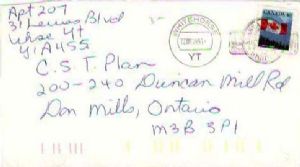 Apt 207
31 Lewes Blvd
Whse Yt
Y1A4S5
WHITEHORSE
YT
CANADA
C.S.T. Plan
200-240 Duncan Mill Rd
Don Mills, Ontario
M3B 3P1